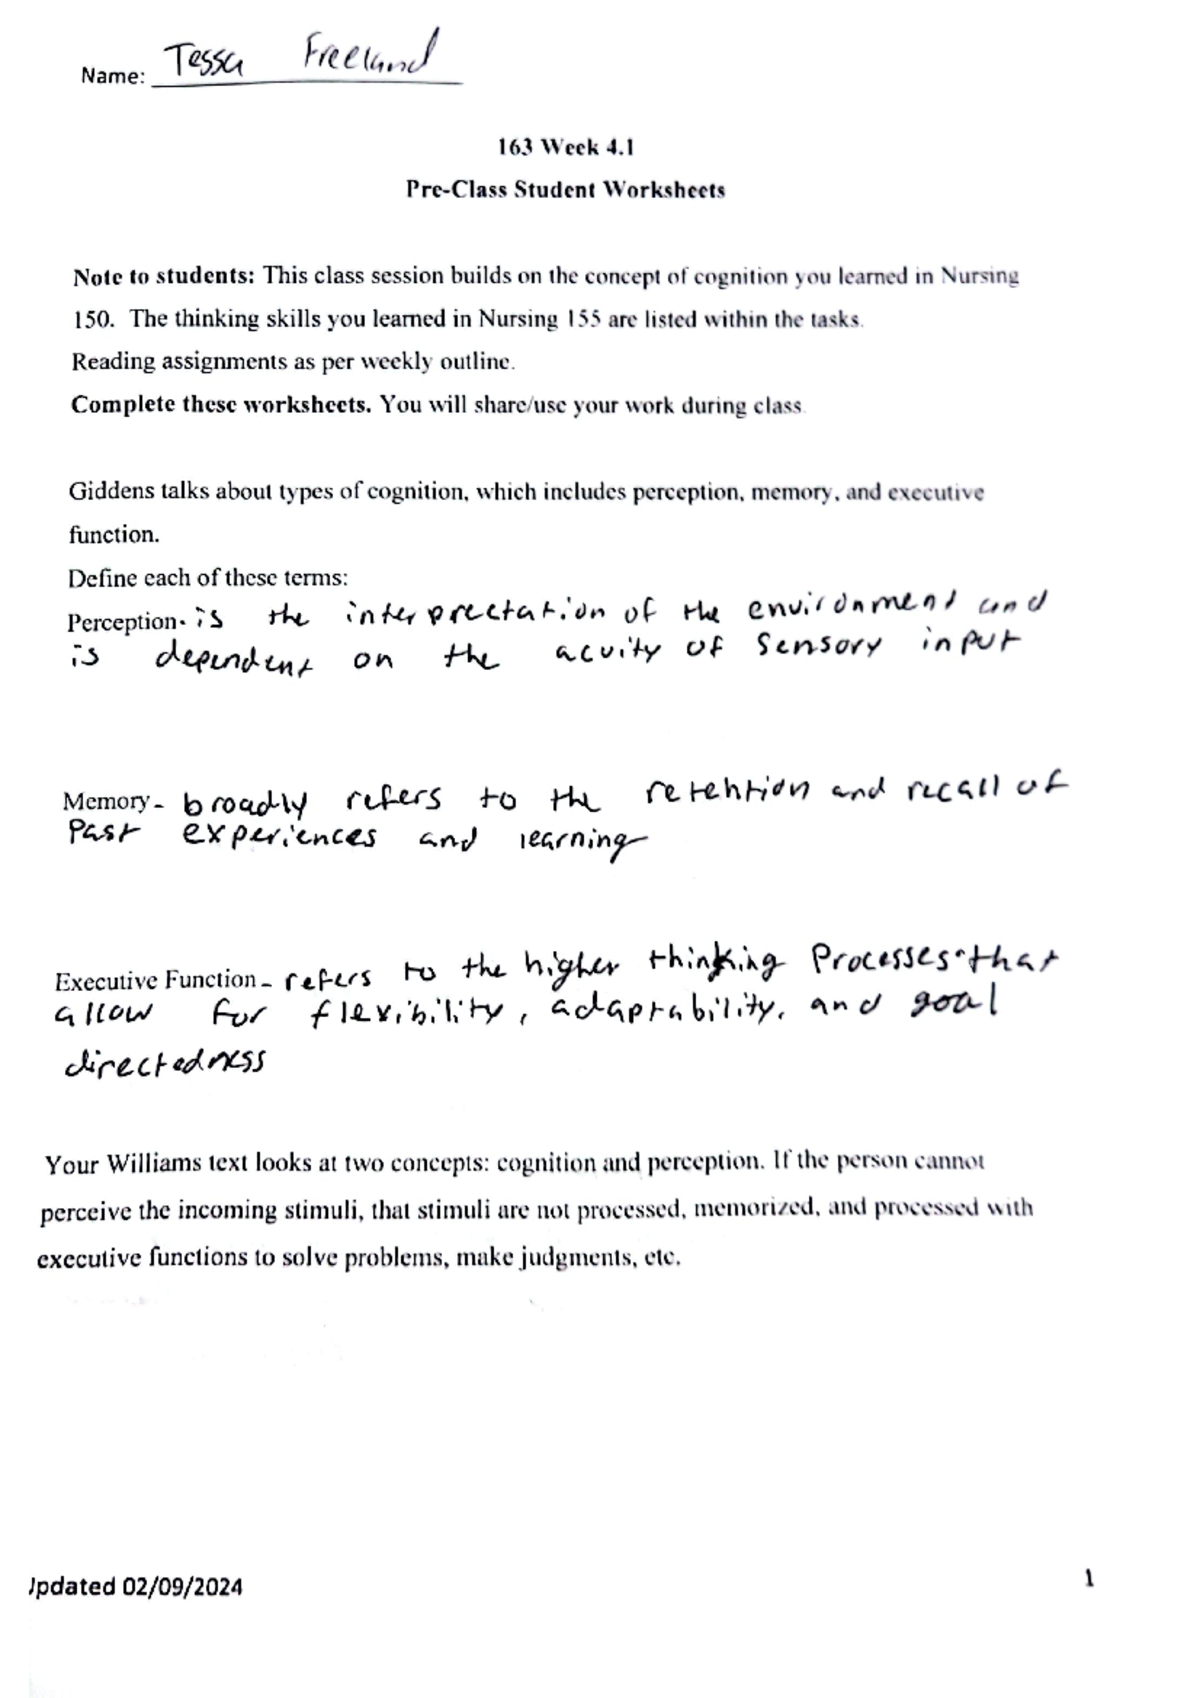 Name: Tessa Freeland
163 Week 4.1
Pre-Class Student Worksheets
Note to students: This class session builds on the concept of cognition you learned in Nursing
150. The thinking skills you learned in Nursing 155 are listed within the tasks.
Reading assignments as per weekly outline.
Complete these worksheets. You will share/use your work during class.
Giddens talks about types of cognition, which includes perception, memory, and executive
function.
Define each of these terms:
Perception- is the interpretation of the environment and
is dependent on the acuity of sensory input
Memory - broadly refers to the retention and recall of
Past experiences and learning
Executive Function - refers to the higher thinking Processes that
allow for flexibility, adaptability, and goal
directedness
Your Williams text looks at two concepts: cognition and perception. If the person cannot
perceive the incoming stimuli, that stimuli are not processed, memorized, and processed with
executive functions to solve problems, make judgments, etc.
Updated 02/09/2024
1